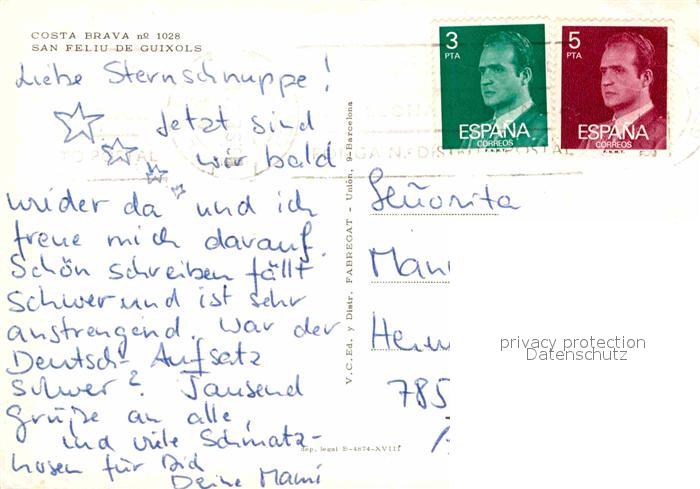 COSTA BRAVA nº 1028
SAN FELIU DE GUIXOLS
Liebe Sternschnuppe!
Jetzt sind
wir bald
wieder da und ich
freue mich darauf.
Schön schreiben fällt
schwer und ist sehr
anstrengend. War der
Deutsch-Aufsatz
schwer? Tausend
Grüße an alle,
und viele Schmatz-
hosen für Did
Deine Mami
V.C.Ed. y Distr. FABREGAT - Unión, 9-Barcelona
dep. legal B-4874-XVIII
3
PTA
ESPAÑA
CORREOS
F.N.M.T.
5
PTA
ESPAÑA
CORREOS
F.N.M.T.
Señorita
785
privacy protection
Datenschutz